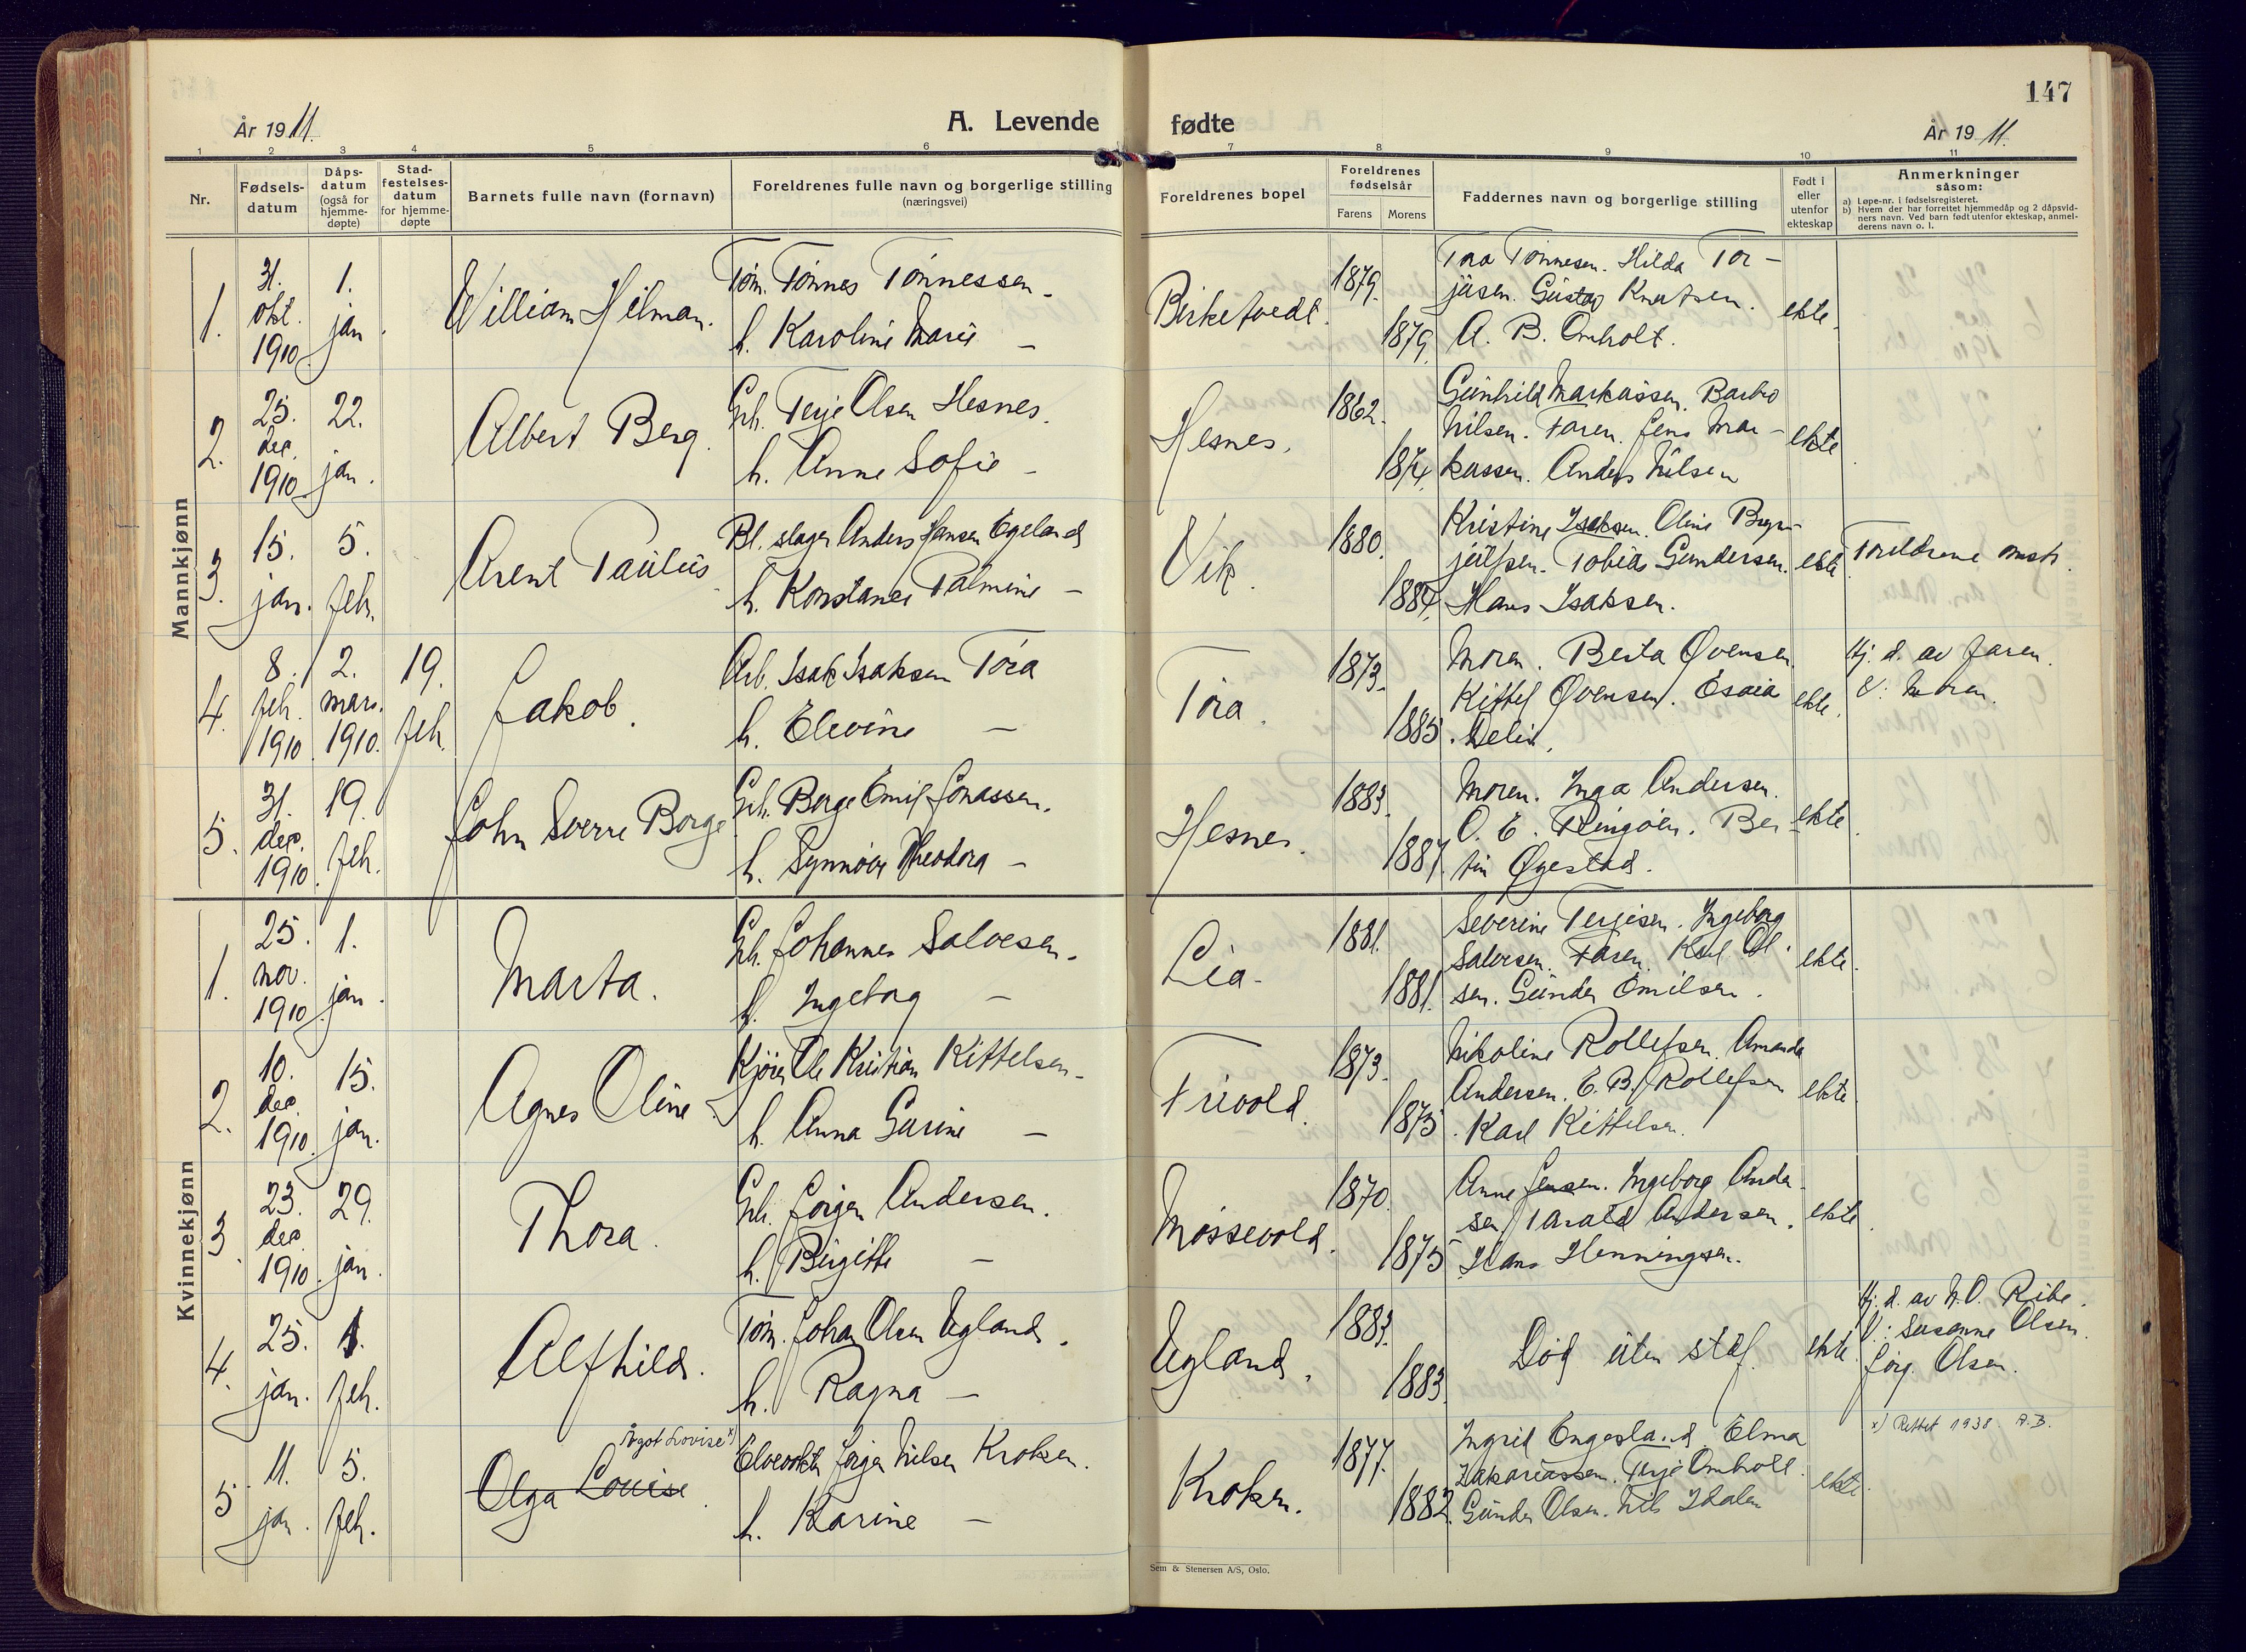 147
År 1911.
A. Levende
fødte
År 1911.
1 2 3 4 5 6 7 8 9 10 11
Nr.
Fødsels-
datum
Dåps-
datum
(også for
hjemme-
døpte)
Stad-
festelses-
datum
for hjemme-
døpte
Barnets fulle navn (fornavn)
Foreldrenes fulle navn og borgerlige stilling
(næringsvei)
Foreldrenes bopel
Foreldrenes
fødselsår
Farens
Morens
Faddernes navn og borgerlige stilling
Født i
eller
utenfor
ekteskap
Anmerkninger
såsom:
a) Løpe-nr. i fødselsregisteret.
b) Hvem der har forrettet hjemmedåp og 2 dåpsvid-
ners navn. Ved barn født utenfor ekteskap, anmel-
derens navn o. l.
Mannkjønn
1.
31.
okt.
1910
1.
jan
William Hilman.
Tøm. Tønnes Tønnessen.
h. Karoline Marie —
Birketvedt.
1879.
1879.
Tønnesen. Hilda Tor-
jusen. Gustav Knutsen.
A. B. Omholt.
ekte.
2.
25.
dec.
1910
22.
jan.
Albert Berg.
Gh. Terje Olsen Hesnes.
h. Anne Sofie —
Hesnes.
1862.
Gunhild Markussen. Barbro
Nilsen. Faren. Jens Mar-
kussen. Anders Nilsen
ekte
3.
15.
jan.
5.
feb.
Arent Paulus
Bl. slager Anders Jansen Egeland
h. Konstance Palmine —
Vik.
1880.
1884.
Kristine Isaksen. Oline
Tobias Gundersen.
Hans Isaksen.
ekte
Foreldrene
4.
8.
feb.
1910
2.
mars.
1910.
19.
feb.
Jakob.
Arb. Isak Isaksen Tóra
h. Elevine —
Tóra.
1873.
1885.
Moren. Berta Øvensen.
Kittel Øvensen. Esaia
ekte.
Hj. d. av faren.
V: Moren.
5.
31.
dec.
1910.
19.
feb.
John Sverre Borge
Gh. Borge Emil Jonassen.
h. Synnøve Theodora —
Hesnes.
1883.
1887.
Moren. Inga Andersen.
O. E. Ringøen. Ber-
tin Øgestad.
ekte.
Kvinnekjønn
1.
25.
nov.
1910.
1.
jan.
Marta.
Gh. Johannes Salvesen.
h. Ingeborg —
Lia.
1881.
1881.
Severine Terjesen. Ingeborg
Salvesen. Faren. Karl Ol-
sen. Gunder Emilsen.
ekte.
2.
10.
dec.
1910.
15.
jan.
Agnes Oline
Kjører Ole Kristian Kittelsen.
h. Anna Gurine —
Frivold.
1873.
1875.
Nikoline Rollefsen. Amanda
Andersen. E. B. Rollefsen
Karl Kittelsen.
ekte.
3.
23.
dec.
1910.
29.
jan.
Thora.
Gh. Jørgen Andersen.
h. Birgitte —
Mossevold.
1870.
1875
Anne Jensen. Ingeborg Ander-
sen. Tarald Andersen.
Hans Henningsen.
ekte.
4.
25.
jan.
1.
feb.
Alfhild.
Tøm. Johan Olsen Ugland.
h. Ragna —
Ugland.
1883.
1883.
Død uten staf.
ekte.
Hj. d. av N. O. Ribe.
V: Susanne Olsen.
Jørg. Olsen.
5
11.
jan.
5.
feb.
Ågot Lovise x)
Olga Louise.
Elvevokter Jørgen Nilsen Kroken.
h. Karine —
Kroken.
1877.
1882.
Ingrid Engesland. Elma
Zakariassen. Terje Omholt.
Gunder Olsen. Nils
ekte.
x) Rettet 1938. A.B.
Sem & Stenersen A/S, Oslo.